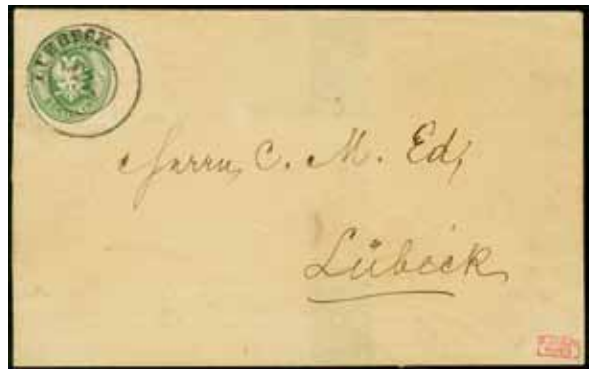 LUEBECK
Herrn C. M. Ed,
Lübeck